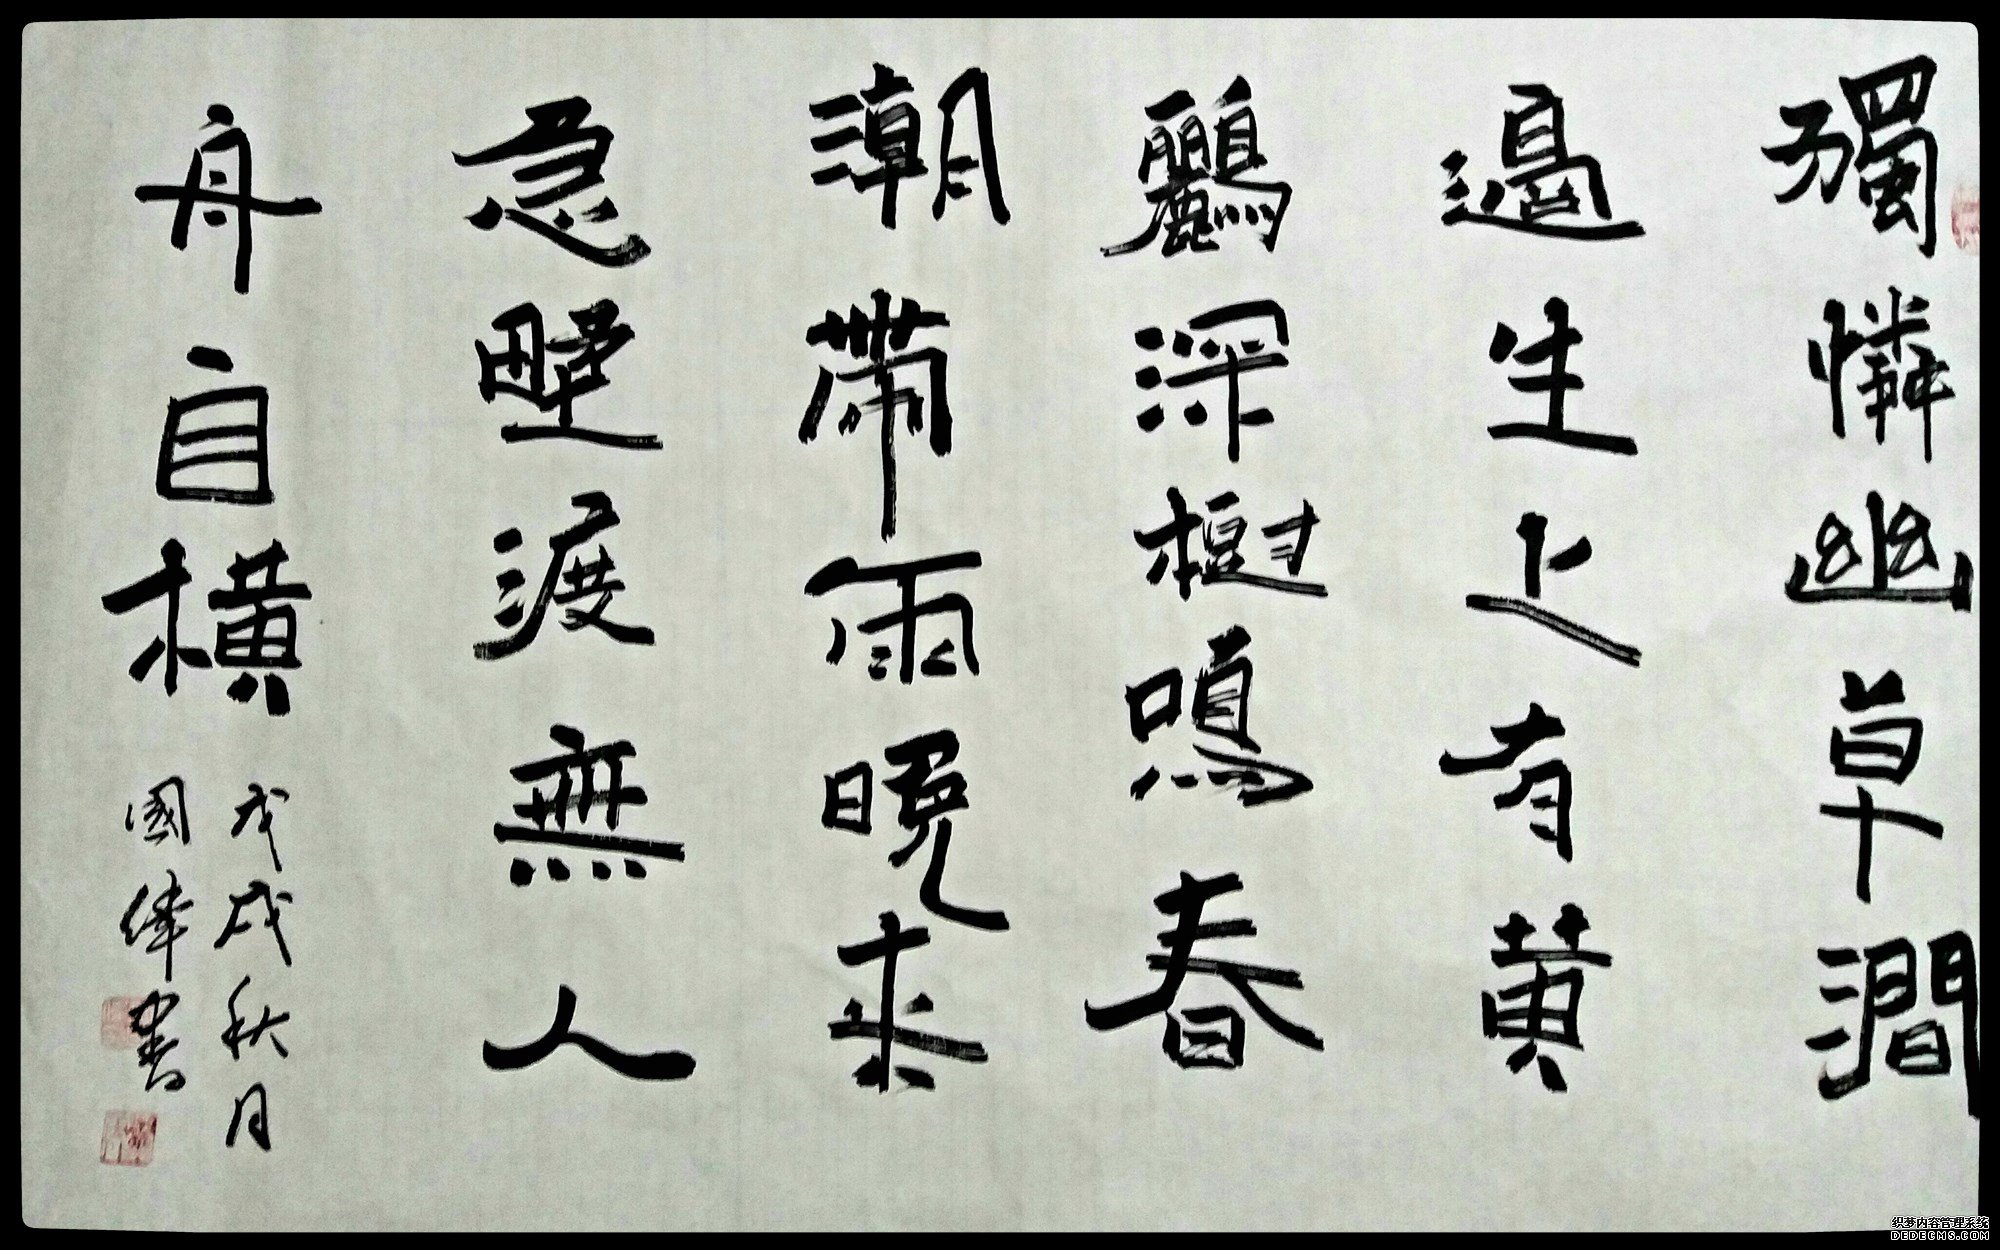 獨憐幽草澗
邊生上有黄
鸝深樹鳴春
潮帶雨晚来
急野渡無人
舟自横
戊戌秋月
國偉書
织梦内容管理系统
DEDECMS.COM